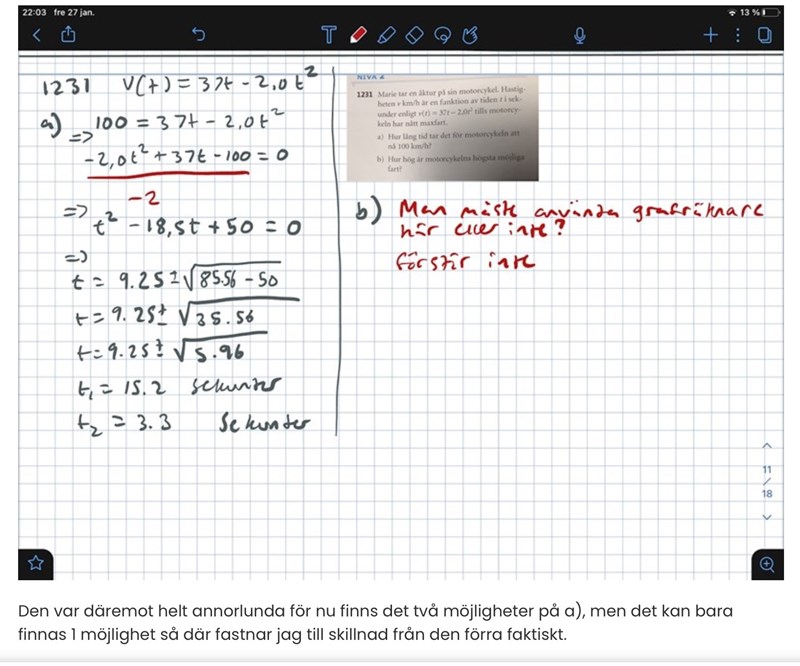 22:03 fre 27 jan.
13 %
1231 V(t) = 37t - 2,0t²
a) 100 = 37t - 2,0t²
=>
-2,0t² + 37t - 100 = 0
-2
=> t² - 18,5t + 50 = 0
=>
t = 9.25 ± √85.56 - 50
t = 9.25 ± √35.56
t = 9.25 ± √5.96
t₁ = 15.2 sekunter
t₂ = 3.3 Sekunter
NIVÅ 2
1231 Marie tar en åktur på sin motorcykel. Hastig-
heten v km/h är en funktion av tiden t i sek-
under enligt v(t) = 37t − 2,0t² tills motorcy-
keln har nått maxfart.
a) Hur lång tid tar det för motorcykeln att
nå 100 km/h?
b) Hur hög är motorcykelns högsta möjliga
fart?
b) Man måste använda grafräknare
här eller inte?
förstår inte
11
/
18
Den var däremot helt annorlunda för nu finns det två möjligheter på a), men det kan bara
finnas 1 möjlighet så där fastnar jag till skillnad från den förra faktiskt.